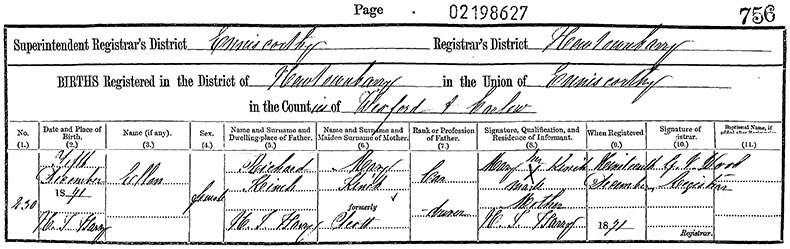 Page . 02198627 756
Superintendent Registrar's District Enniscorthy Registrar's District Newtownbarry
BIRTHS Registered in the District of Newtownbarry in the Union of Enniscorthy
in the Counties of Wexford & Carlow
No. (1.) Date and Place of Birth. (2.) Name (if any). (3.) Sex. (4.) Name and Surname and Dwelling-place of Father. (5.) Name and Surname and Maiden Surname of Mother. (6.) Rank or Profession of Father. (7.) Signature, Qualification, and Residence of Informant. (8.) When Registered (9.) Signature of Registrar. (10.) Baptismal Name, if (11.)
Richard Mary Mary her Kinch
December Ellen Kinch Kinch Car X December Registrar
1871 female mark
230 formerly driver Mother
N. T. Barry N. T. Barry Scott N. T. Barry 1871 Registrar.